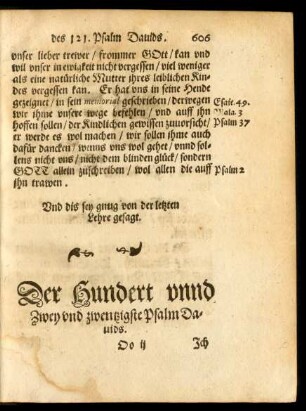 des 121. Psalm Dauids. 606
vnser lieber trewer / frommer GOtt / kan vnd
wil vnser in ewigkeit nicht vergessen / viel weniger
als eine natürliche Mutter jhres leiblichen Kin-
des vergessen kan. Er hat vns in seine Hende
gezeignet / in sein memorial geschrieben / derwegen Esaie. 49.
wir jhme vnsere wege befehlen / vnd auff jhn Mala. 3
hoffen sollen / der Kindlichen gewissen zuuorsicht / Psalm 37
er werde es wol machen / wir sollen jhme auch
dafür dancken / wenns vns wol gehet / vnnd sol-
lens nicht vns / nicht dem blinden glück / sondern
GOTT allein zuschreiben / wol allen die auff Psalm 2
jhn trawen.
Vnd dis sey gnug von der letzten
Lehre gesagt.
Der Hundert vnnd
Zwey vnd zwentzigste Psalm Da-
uids.
Oo ij Jch